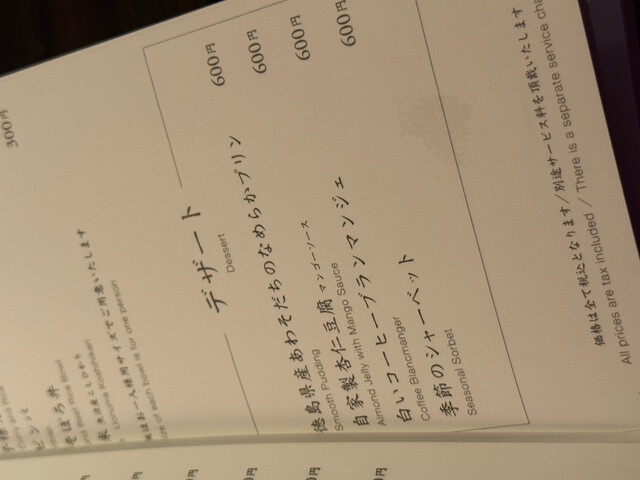 300円
ピンス
そぼろ丼
and Beef Rice Bowl
米 魚沼産こしひかり
Uonuma Koshihikari
飯はお一人様用サイズでご用意いたします
size of each bowl is for one person
デザート
Dessert
徳島県産あわそだちのなめらかプリン 600円
Smooth Pudding
自家製杏仁豆腐 マンゴーソース 600円
Almond Jelly with Mango Sauce
白いコーヒーブランマンジェ 600円
Coffee Blancmanger
季節のシャーベット 600円
Seasonal Sorbet
価格は全て税込となります/別途サービス料を頂戴いたします
All prices are tax included / There is a separate service cha